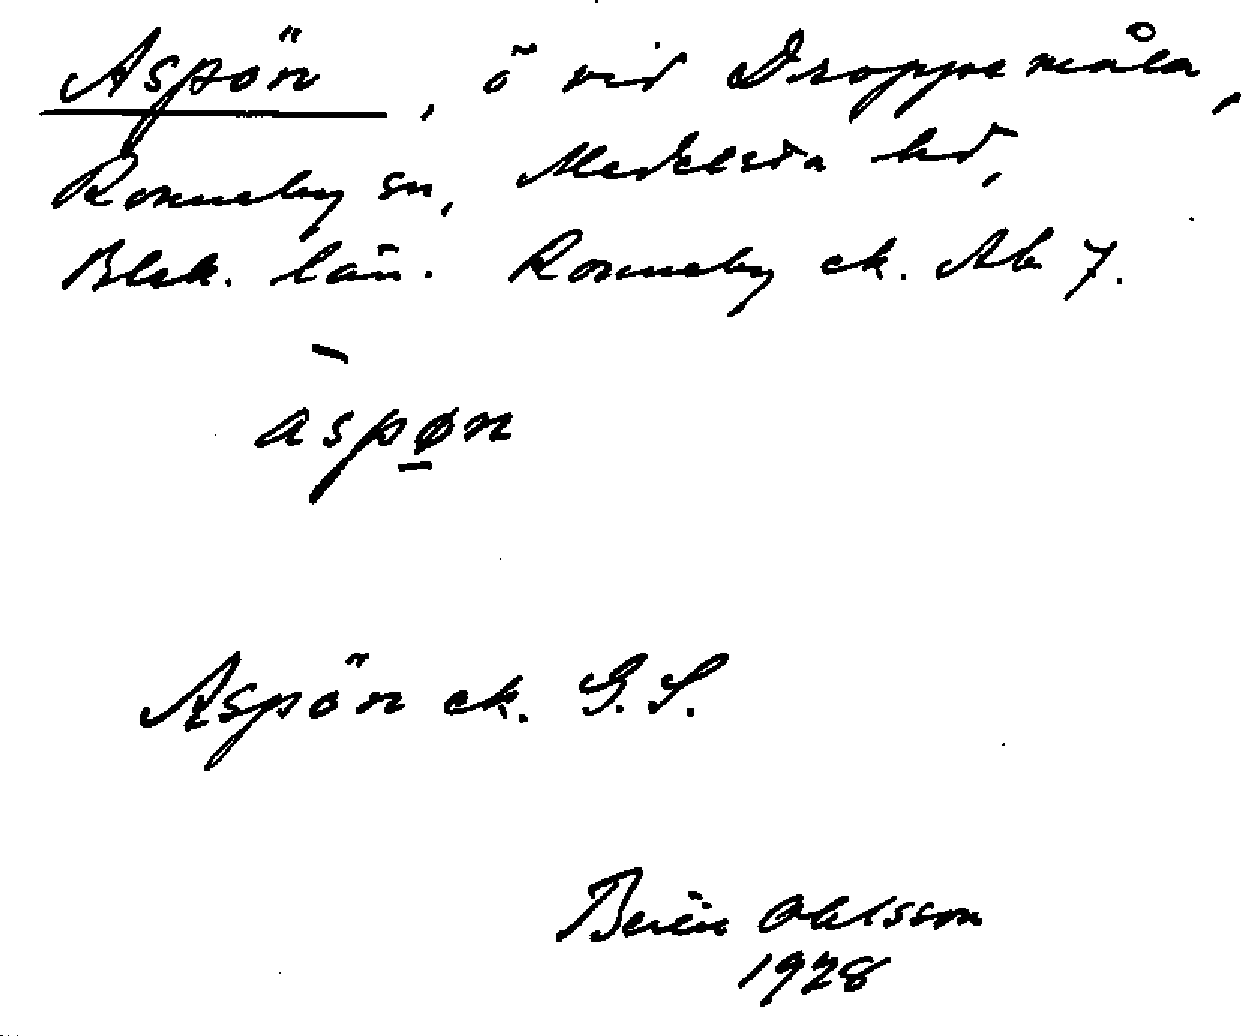 Aspön, ö vid Droppemåla,
Ronneby sn, Medelsta hd,
Blek. län. Ronneby ek. Ab 7.
aspøn
Aspön ek. G.S.
Ohlsson
1928